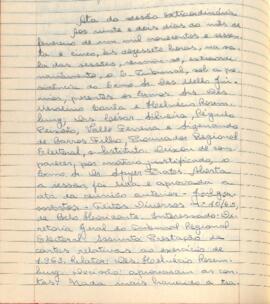 Ata da sessão extraordinária
Aos vinte e dois dias do mês de
fevereiro de mil novecentos e sessen-
ta e cinco, às dezessete horas, na sa-
la das sessões, reuniu-se, extraordi-
nariamente, o E. Tribunal, sob a pre-
sidência do Exmo. Sr. Des. Mello Jú-
nior, presentes os Exmos. Srs. Des.
Costa e Helvécio Rosen-
burg, Drs. César Silveira,
Peixoto, Valle Ferreira e
de Barros Filho, Procurador Regional
Eleitoral, substituto. Deixou de com-
parecer, por motivo justificado, o
Exmo. Sr. Dr. Aberta
a sessão, foi lida e aprovada a
ata da reunião anterior. Julga-
mentos: Feitos Diversos nº
de Belo Horizonte. Interessado: Di-
retoria Geral do Tribunal Regional
Eleitoral. Assunto: Prestação de
contas relativas ao exercício de
1.963. Relator: Des. Helvécio Rosen-
burg. Decisão: aprovaram as con-
tas. Nada mais havendo a tra-